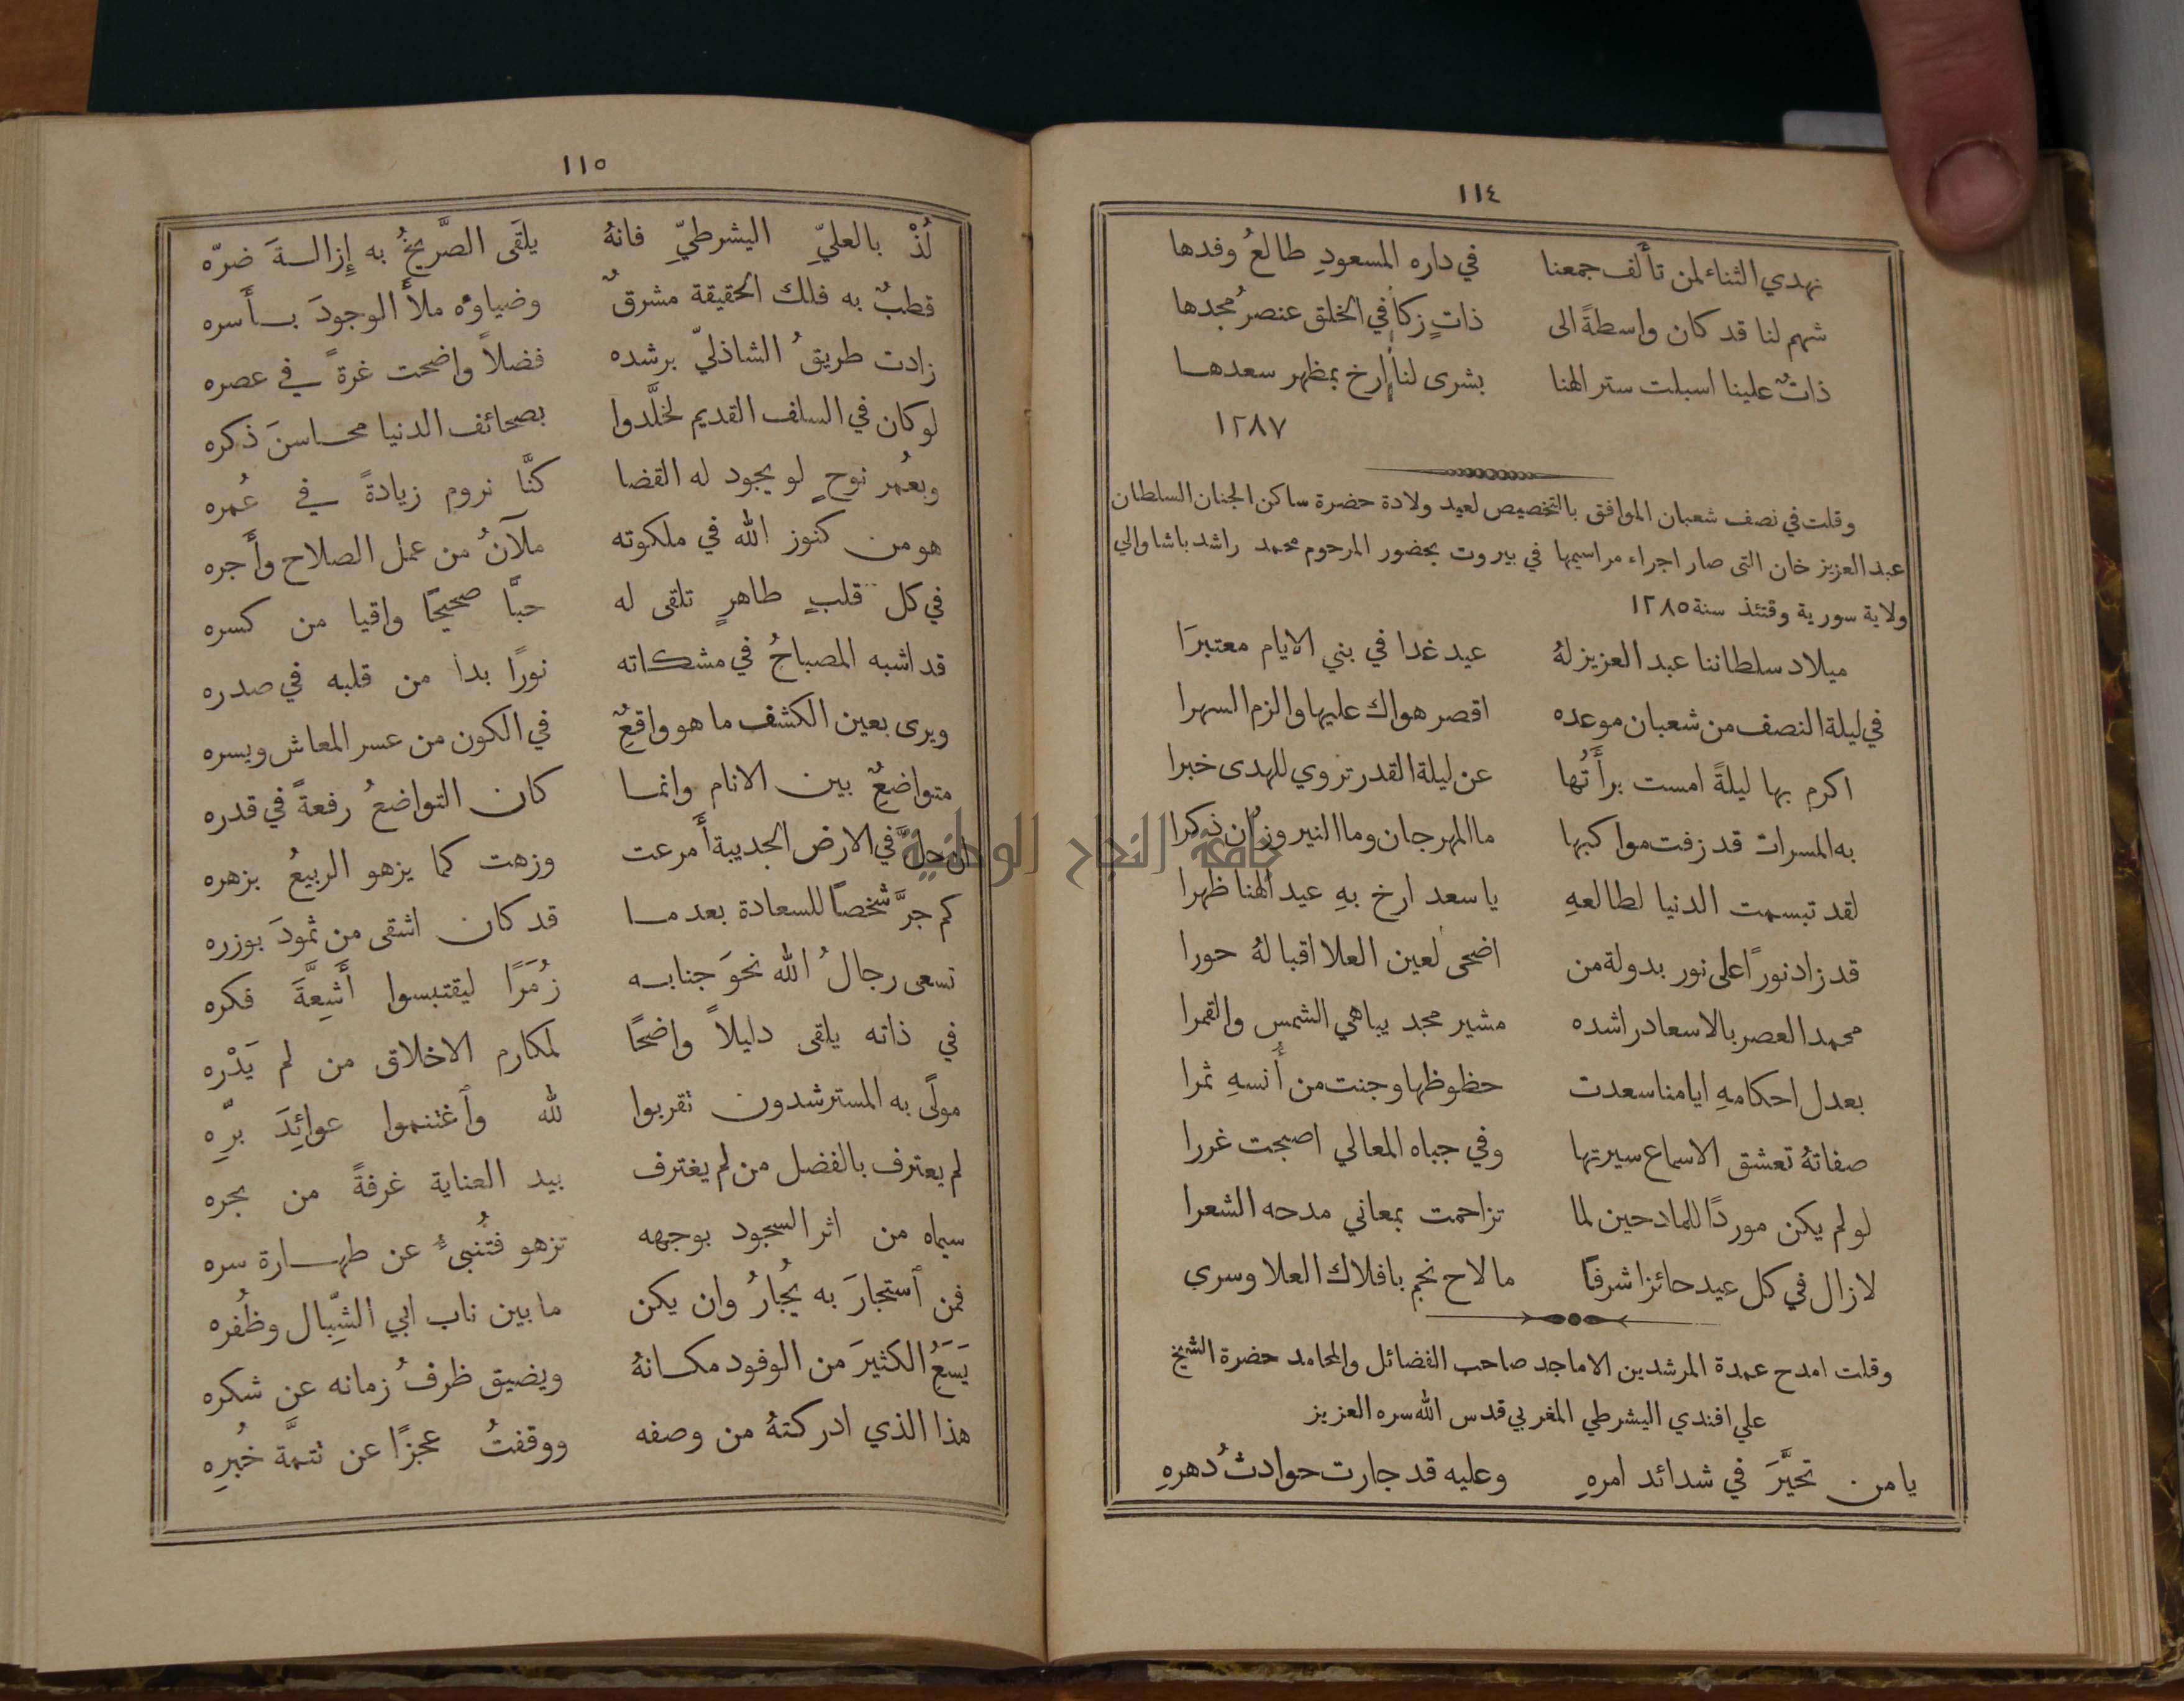 ١١٤
نهدي الثناء لمن تأَلف جمعنا في داره المسعودِ طالعُ وفدها
شهم لنا قد كان واسطةً الى ذاتٍ زكا في الخلق عنصرُ مجدها
ذاتٌ علينا اسبلت ستر الهنا بشرى لنا إرخ بمظهر سعدها
١٢٨٧
وقلت في نصف شعبان الموافق بالتخصيص لعيد ولادة حضرة ساكن الجنان السلطان
عبد العزيز خان التى صار اجراء مراسيمها في بيروت بحضور المرحوم محمد راشد باشا والي
ولاية سورية وقتئذ سنة ١٢٨٥
ميلاد سلطاننا عبد العزيز لهُ عيد غدا في بني الايام معتبرَا
في ليلة النصف من شعبان موعده اقصر هواك عليها والزم السهرا
اكرم بها ليلةً امست برأَتُها عن ليلة القدر تروي للهدى خبرا
به المسرات قد زفت مواكبها ما المهرجان وما النيروز أن ذكرا
لقد تبسمت الدنيا لطالعهِ يا سعد ارخ بهِ عيد الهنا ظهرا
قد زاد نورًا على نور بدولة من اضحى لعين العلا اقبالهُ حورا
محمد العصر بالاسعاد راشده مشير مجد يباهي الشمس والقمرا
بعدل احكامهِ ايامنا سعدت حظوظها وجنت من أُنسهِ ثمرا
صفاتهُ تعشق الاسماع سيرتها وفي جباه المعالي اصبحت غررا
لو لم يكن موردًا للمادحين لما تزاحمت بمعاني مدحه الشعرا
لا زال في كل عيد حائزا شرفًا ما لاح نجم بافلاك العلا وسرى
وقلت امدح عمدة المرشدين الاماجد صاحب الفضائل والمحامد حضرة الشيخ
علي افندي اليشرطي المغربي قدس الله سره العزيز
يا من تحيَّرَ في شدائد امرهِ وعليه قد جارت حوادثُ دهرهِ
١١٥
لُذْ بالعليِّ اليشرطيِّ فانهُ يلقَى الصَّريخُ به إِزالةَ ضرّه
قطبٌ به فلك الحقيقة مشرقٌ وضياوُه ملأَ الوجودَ بأَسره
زادت طريقُ الشاذليّ برشده فضلاً واضحت غرةً في عصره
لو كان في السلف القديم لخلَّدوا بصحائف الدنيا محاسنَ ذكره
وبعُمر نوحٍ لو يجود له القضا كنَّا نروم زيادةً في عُمره
هو من كنوز الله في ملكوته ملآنُ من عمل الصلاح وأَجره
في كل قلبٍ طاهرٍ تلقى له حبًّا صحيحًا واقيا من كسره
قد اشبه المصباحُ في مشكاته نورًا بدا من قلبه في صدره
ويرى بعين الكشف ما هو واقعٌ في الكون من عسر المعاش ويسره
متواضعٌ بين الانام وانما كان التواضعُ رفعةً في قدره
ان حلَّ في الارض الجديبة أَمرعت وزهت كما يزهو الربيعُ بزهره
كم جرَّ شخصًا للسعادة بعدما قد كان اشقى من ثمودَ بوزره
تسعى رجالُ الله نحوَ جنابه زُمَرًا ليقتبسوا أَشِعةَّ فكره
في ذاته يلقى دليلاً واضحًا لمكارم الاخلاق من لم يَدْره
مولًى به المسترشدون تقربوا لله وأغتنموا عوائِدَ برّهِ
لم يعترف بالفضل من لم يغترف بيد العناية غرفةً من بحره
سيماه من اثر السجود بوجهه تزهو فتُنبىءُ عن طهارة سره
فمن أستجارَ به يُجارُ وان يكن ما بين ناب ابي الشِّبال وظُفره
يَسَعُ الكثيرَ من الوفود مكانهُ ويضيق ظرفُ زمانه عن شكره
هذا الذي ادركتهُ من وصفه ووقفتُ عجزًا عن تتمَّة خُبرِه
جامعة النجاح الوطنية